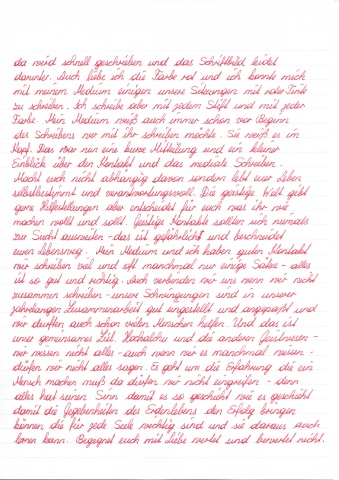 da wird schnell geschrieben und das Schriftbild leidet
darunter. Auch liebe ich die Farbe rot und ich konnte mich
mit meinem Medium einigen unsere Sitzungen mit roter Tinte
zu schreiben. Ich schreibe aber mit jedem Stift und mit jeder
Farbe. Mein Medium weiß auch immer schon vor Beginn
des Schreibens wer mit ihr schreiben möchte. Sie weiß es im
Kopf. Das war nun eine kurze Mitteilung und ein kleiner
Einblick über den Kontakt und das mediale Schreiben.
Macht euch nicht abhängig davon sondern lebt euer Leben
selbstbestimmt und verantwortungsvoll. Die geistige Welt gibt
gerne Hilfestellungen aber entscheidet für euch was ihr wie
machen wollt und sollt. Geistige Kontakte sollten sich niemals
zur Sucht ausweiten - das ist gefährlich und beschneidet
euren Lebensweg. Mein Medium und ich haben guten Kontakt
wir schreiben viel und oft manchmal nur einige Sätze - alles
ist so gut und richtig. Auch verbinden wir uns wenn wir nicht
zusammen schreiben - unsere Schwingungen sind in unserer
jahrelangen Zusammenarbeit gut eingestellt und angepasst und
wir durften auch schon vielen Menschen helfen. Und das ist
unser gemeinsames Ziel. und die anderen Geistwesen -
wir wissen nicht alles - auch wenn wir es manchmal wissen -
dürfen wir nicht alles sagen. Es geht um die Erfahrung die ein
Mensch machen muß da dürfen wir nicht eingreifen - denn
alles hat seinen Sinn damit es so geschieht wie es geschieht
damit die Gegebenheiten des Erdenlebens den Erfolg bringen
können die für jede Seele wichtig sind und sie daraus auch
lernen kann. Begegnet euch mit Liebe wertet und bewertet nicht.